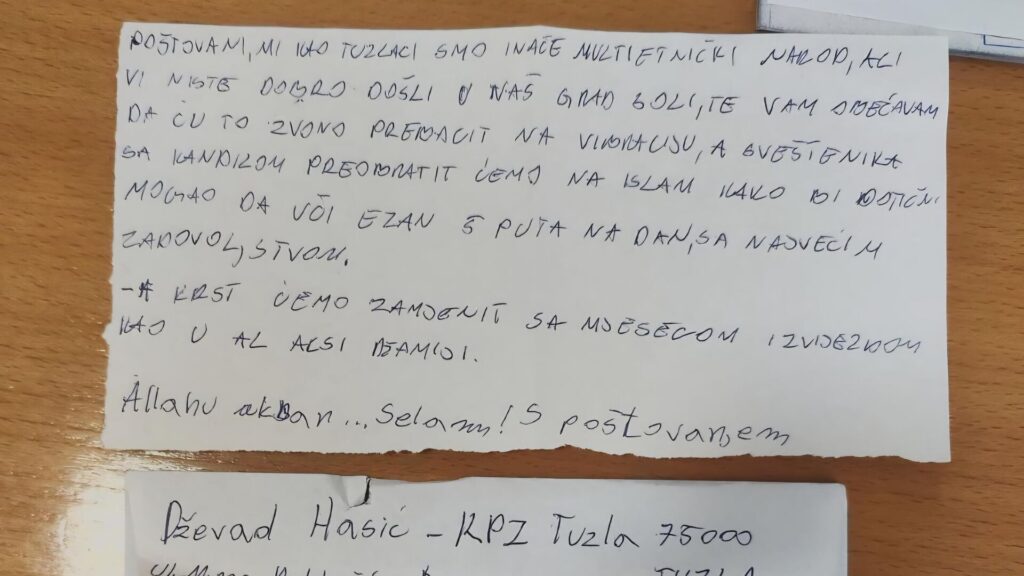 POŠTOVANI, MI KAO TUZLACI SMO INAČE MULTIETNIČKI NAROD, ALI
VI NISTE DOBRO DOŠLI U NAŠ GRAD SOLI, TE VAM OBEĆAVAM
DA ĆU TO ZVONO PREBACIT NA VIBRACIJU, A SVEŠTENIKA
SA KANDILOM PREOBRATIT ĆEMO NA ISLAM KAKO BI DOTIČNI
MOGAO DA UČI EZAN 5 PUTA NA DAN, SA NAJVEĆIM
ZADOVOLJSTVOM.
-A KRST ĆEMO ZAMJENIT SA MJESECOM I ZVIJEZDOM
KAO U AL AKSI DŽAMIJI.
Allahu akbar... Selam! S poštovanjem
Dževad Hasić - KPZ Tuzla 75000
TUZLA